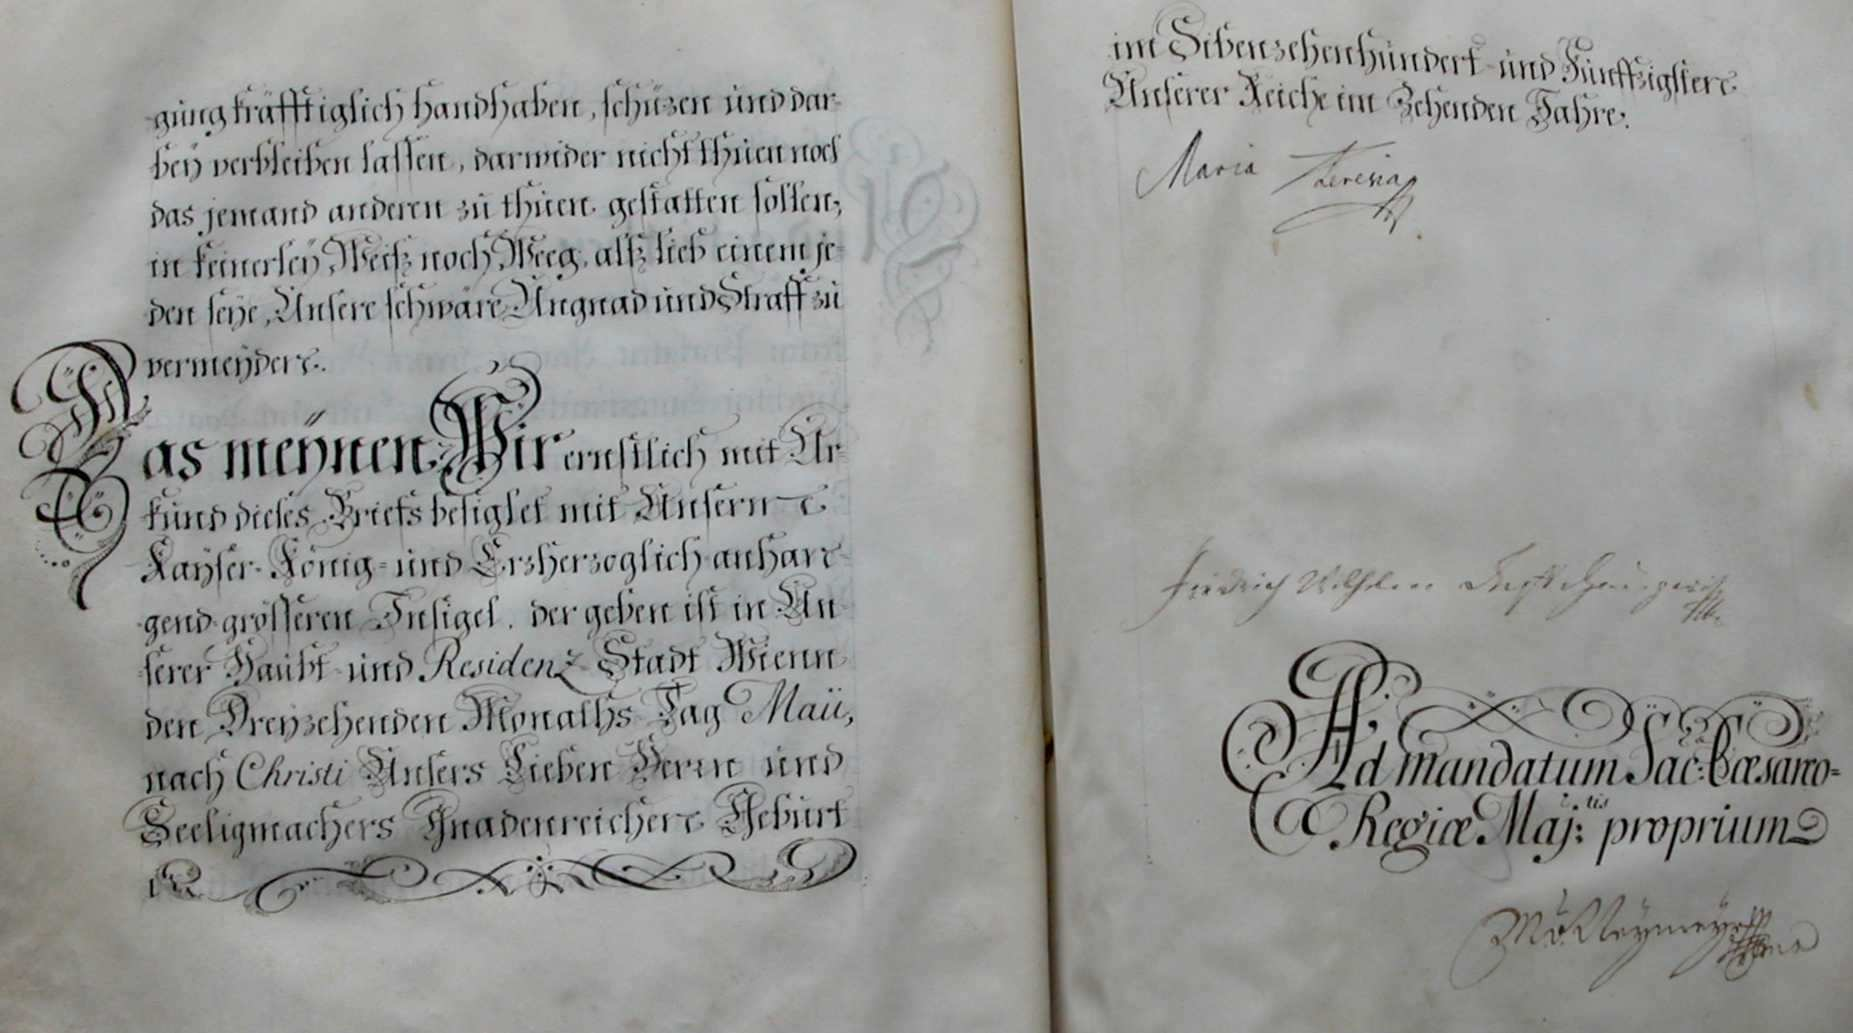 gung kräfftiglich handhaben, schüzen und dar-
bey verbleiben lassen, darwider nicht thuen noch
das jemand anderen zu thuen gestatten sollen,
in keinerley Weiß noch Weeg, alß lieb einem je-
den seye, Unsere schwäre Ungnad und Straff zu
vermeyden.
Das meÿnen Wir ernstlich mit Ur-
kund dieses Briefs besiglet mit Unserm
Kayser- König- und Erzherzoglich anhan-
gend grösseren Insigel, der geben ist in Un-
serer Haubt- und Residenz Stadt Wienn
den Dreyzehenden Monaths Tag Maii,
nach Christi Unsers Lieben Herrn und
Seeligmachers Gnadenreichen Geburt
im Sibenzehenhundert- und Funffzigsten
Unserer Reiche im Zehenden Jahre.
Maria Theresia
Friedrich Wilhelm
Ad mandatum Sac: Cæsareo-
Regiæ Maj:tis proprium